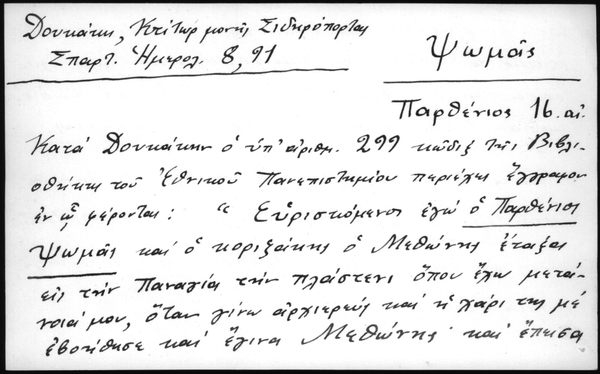 Δουκάκη, Κτίτωρ μονῆς Σιδηρόπορτας
Σπαρτ. Ἡμερολ. 8, 91
Ψωμᾶς
Παρθένιος 16. αἰ.
Κατά Δουκάκην ὁ ὑπ' ἀριθμ. 299 κῶδιξ τῆς Βιβλι-
οθήκης τοῦ Ἐθνικοῦ Πανεπιστημίου περιέχει ἔγγραφον
ἐν ᾧ φέρονται: " Εὑρισκόμενος ἐγώ ὁ Παρθένιος
Ψωμᾶς καί ὁ ὁ Μεθώνης ἔταξα
εἰς τήν Παναγία τήν ὅπου ἔχω μετά-
νοιά μου, ὅταν γίνω ἀρχιερεύς καί ἡ χάρι της μέ
ἐβοήθησε καί ἔγινα Μεθώνης καί ἔπεισα